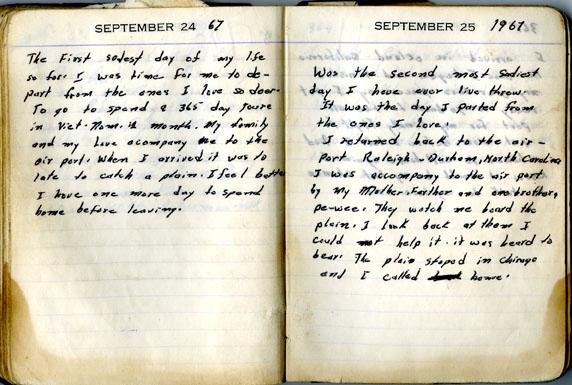 SEPTEMBER 24 67
The First sadest day of my life
so far. I was time for me to de-
part from the ones I love so dear.
To go to spend a 365 day toure
in Viet-Nam. 12 month. My family
and my Love acompany me to the
air port. When I arrived it was to
late to catch a plain. I feel better
I have one more day to spend
home before leaving.
SEPTEMBER 25 1967
Was the second most sadiest
day I have ever live threw.
It was the day I parted from
the ones I love.
I returned back to the air-
port Raleigh-Durham, North Carolina
I was accompany to the air port
by my Mother, Farther and one brother,
pe-wee. They watch me beard the
plain. I look back at them I
could not help it. it was beard to
bear. The plain stoped in chicago
and I called home.